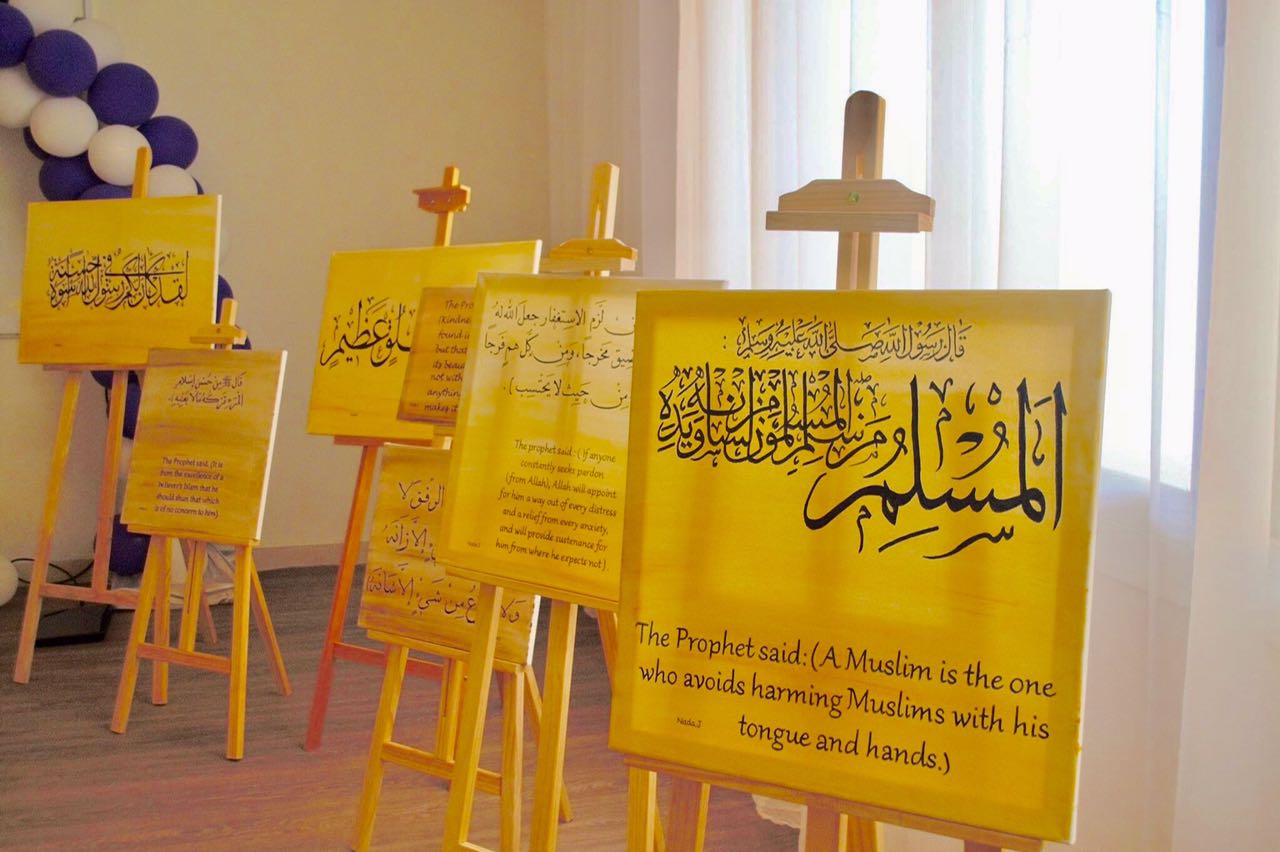 لقد كان لكم في رسول الله أسوة حسنة
قال ﷺ من حسن إسلام
المرء تركه ما لا يعنيه).
The Prophet said, (It is
from the excellence of a
believer's Islam that he
should shun that which
is of no concern to him).
خلق عظيم
The Pro
(Kindne
found i
but tha
its beau
not with
anythin
makes it
الرفق لا
إلا زانه
ولا
ع من شيء إلا شانه
من لزم الاستغفار جعل الله له
ضيق مخرجا، ومن كل هم فرجا
من حيث لا يحتسب).
The prophet said : ( If anyone
constantly seeks pardon
(from Allah), Allah will appoint
for him a way out of every distress
and a relief from every anxiety,
and will provide sustenance for
him from where he expects not) .
Nada.J
قَالَ رَسُولُ اللَّهِ صَلَّى اللَّهُ عَلَيْهِ وَسَلَّمَ :
اَلْمُسْلِمُ مَنْ سَلِمَ الْمُسْلِمُونَ مِنْ لِسَانِهِ وَيَدِهِ
The Prophet said: (A Muslim is the one
who avoids harming Muslims with his
tongue and hands.)
Nada.J